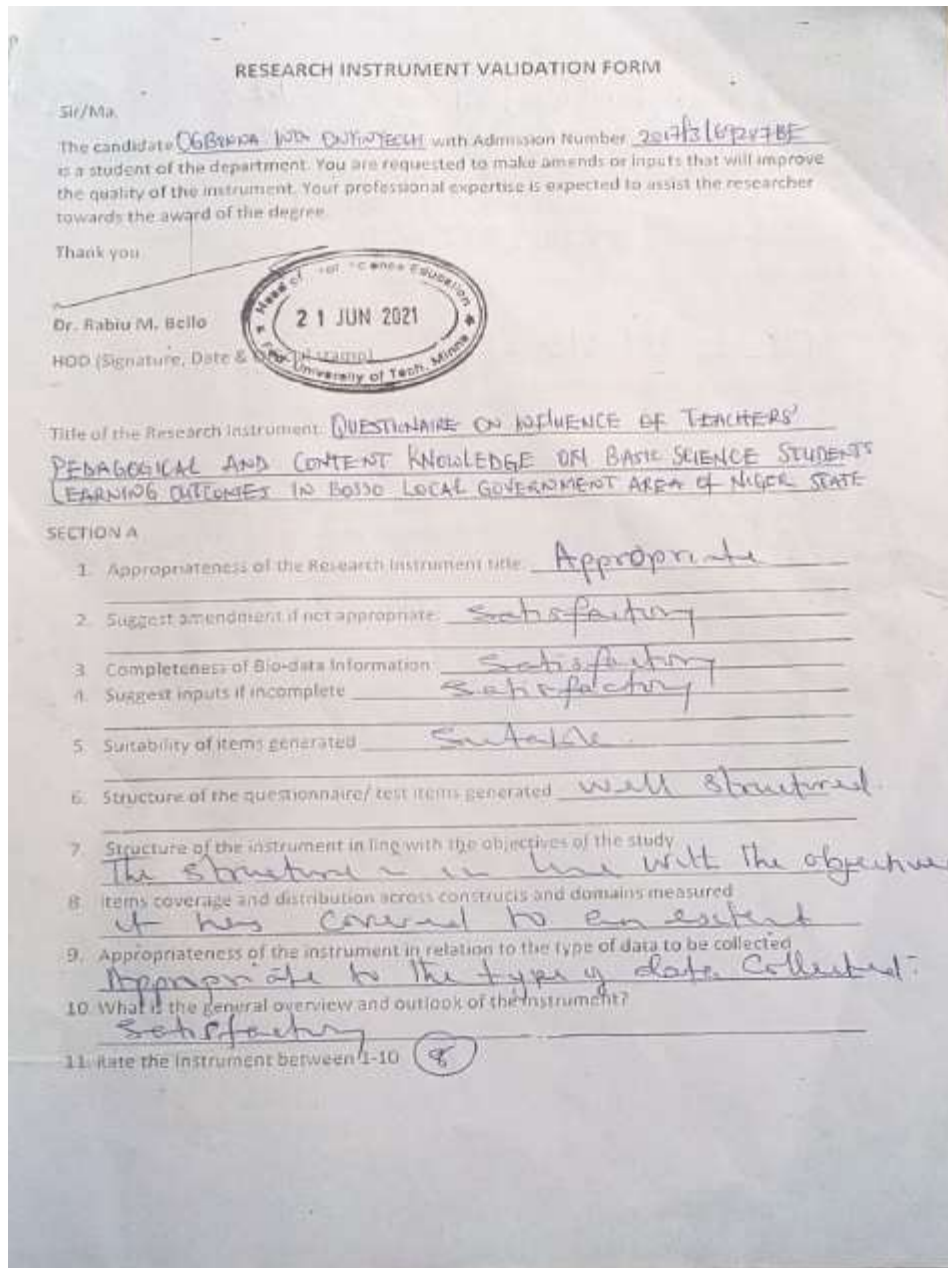 RESEARCH INSTRUMENT VALIDATION FORM
Sir/Ma.
The candidate with Admission Number
is a student of the department. You are requested to make amends or inputs that will improve
the quality of the instrument. Your professional expertise is expected to assist the researcher
towards the award of the degree.
Thank you
Head of Science Education
21 JUN 2021
Dr. Rabiu M. Bello
HOD (Signature, Date & stamp)
University of Tech. Minna
Title of the Research Instrument: QUESTIONAIRE ON INFLUENCE OF TEACHERS'
PEDAGOGICAL AND CONTENT KNOWLEDGE ON BASIC SCIENCE STUDENTS
LEARNING OUTCOMES IN BOSSO LOCAL GOVERNMENT AREA OF NIGER STATE
SECTION A
1. Appropriateness of the Research Instrument title: Appropriate
2. Suggest amendment if not appropriate: Satisfactory
3. Completeness of Bio-data Information Satisfactory
4. Suggest inputs if incomplete Satisfactory
5. Suitability of items generated Suitable
6. Structure of the questionnaire/ test items generated well structured.
7. Structure of the instrument in line with the objectives of the study
The structure is in line with the objective
8. Items coverage and distribution across constructs and domains measured
it has covered to an extent
9. Appropriateness of the instrument in relation to the type of data to be collected
Appropriate to the type of data collected.
10. What is the general overview and outlook of the instrument?
Satisfactory
11. Rate the Instrument between 1-10 8